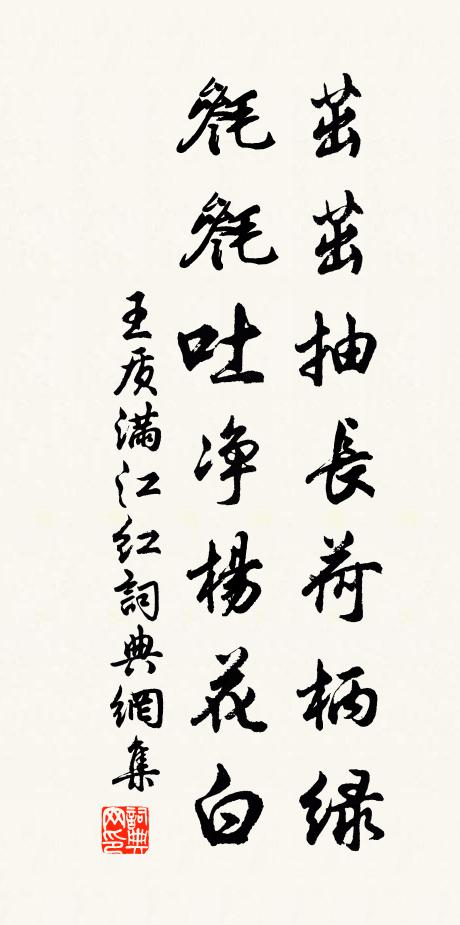 茁茁抽長荷柄绿
毿毿吐净楊花白
王质满江红詞典網集
詞典网印